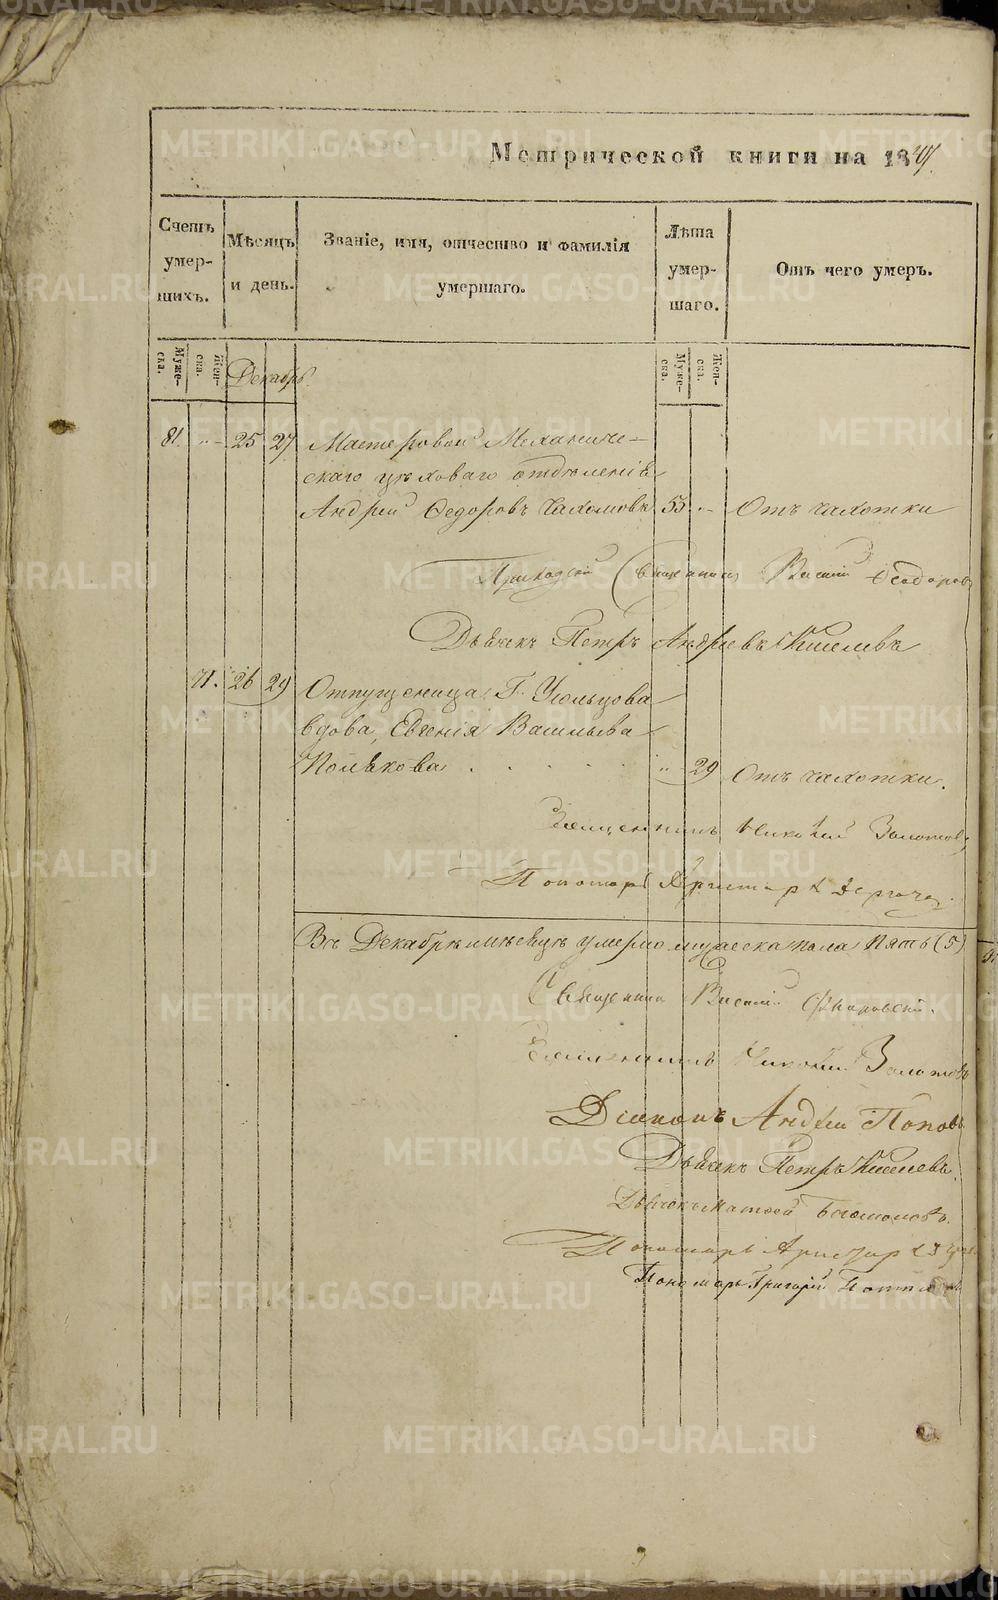 Метрической книги на 1847.
Счетъ умер-шихъ.
Мѣсяцъ и день.
Званіе, имя, отчество и фамилія умершаго.
Лѣта умер-шаго.
Отъ чего умеръ.
Муже-ска.
Жен-ска.
Декабрь
Муже-ска.
Жен-ска.
81. „ 25 27 Мастеровой Механиче-
скаго цѣховаго отдѣленія
Андрей Ѳедоровъ 55 „ Отъ чахотки
Приходскій Священникъ Василій
Дьячекъ Петръ Андреевъ Киселевъ
71. 26 29 Отпущеница Г.
вдова, Евгенія Васильева
Полѣкова . . . . . „ 29 Отъ чахотки.
Священникъ Николай Золотовъ
Пономарь
Въ Декабрѣ мѣсяцѣ умерло мужеска пола пять (5)
Священникъ Василій
Священникъ Николай Золотовъ
Діаконъ Андрей Поповъ
Дьячекъ Петръ Киселевъ.
Дьячекъ Матвей Богомоловъ.
Пономарь
Пономарь Григорій
METRIKI.GASO-URAL.RU